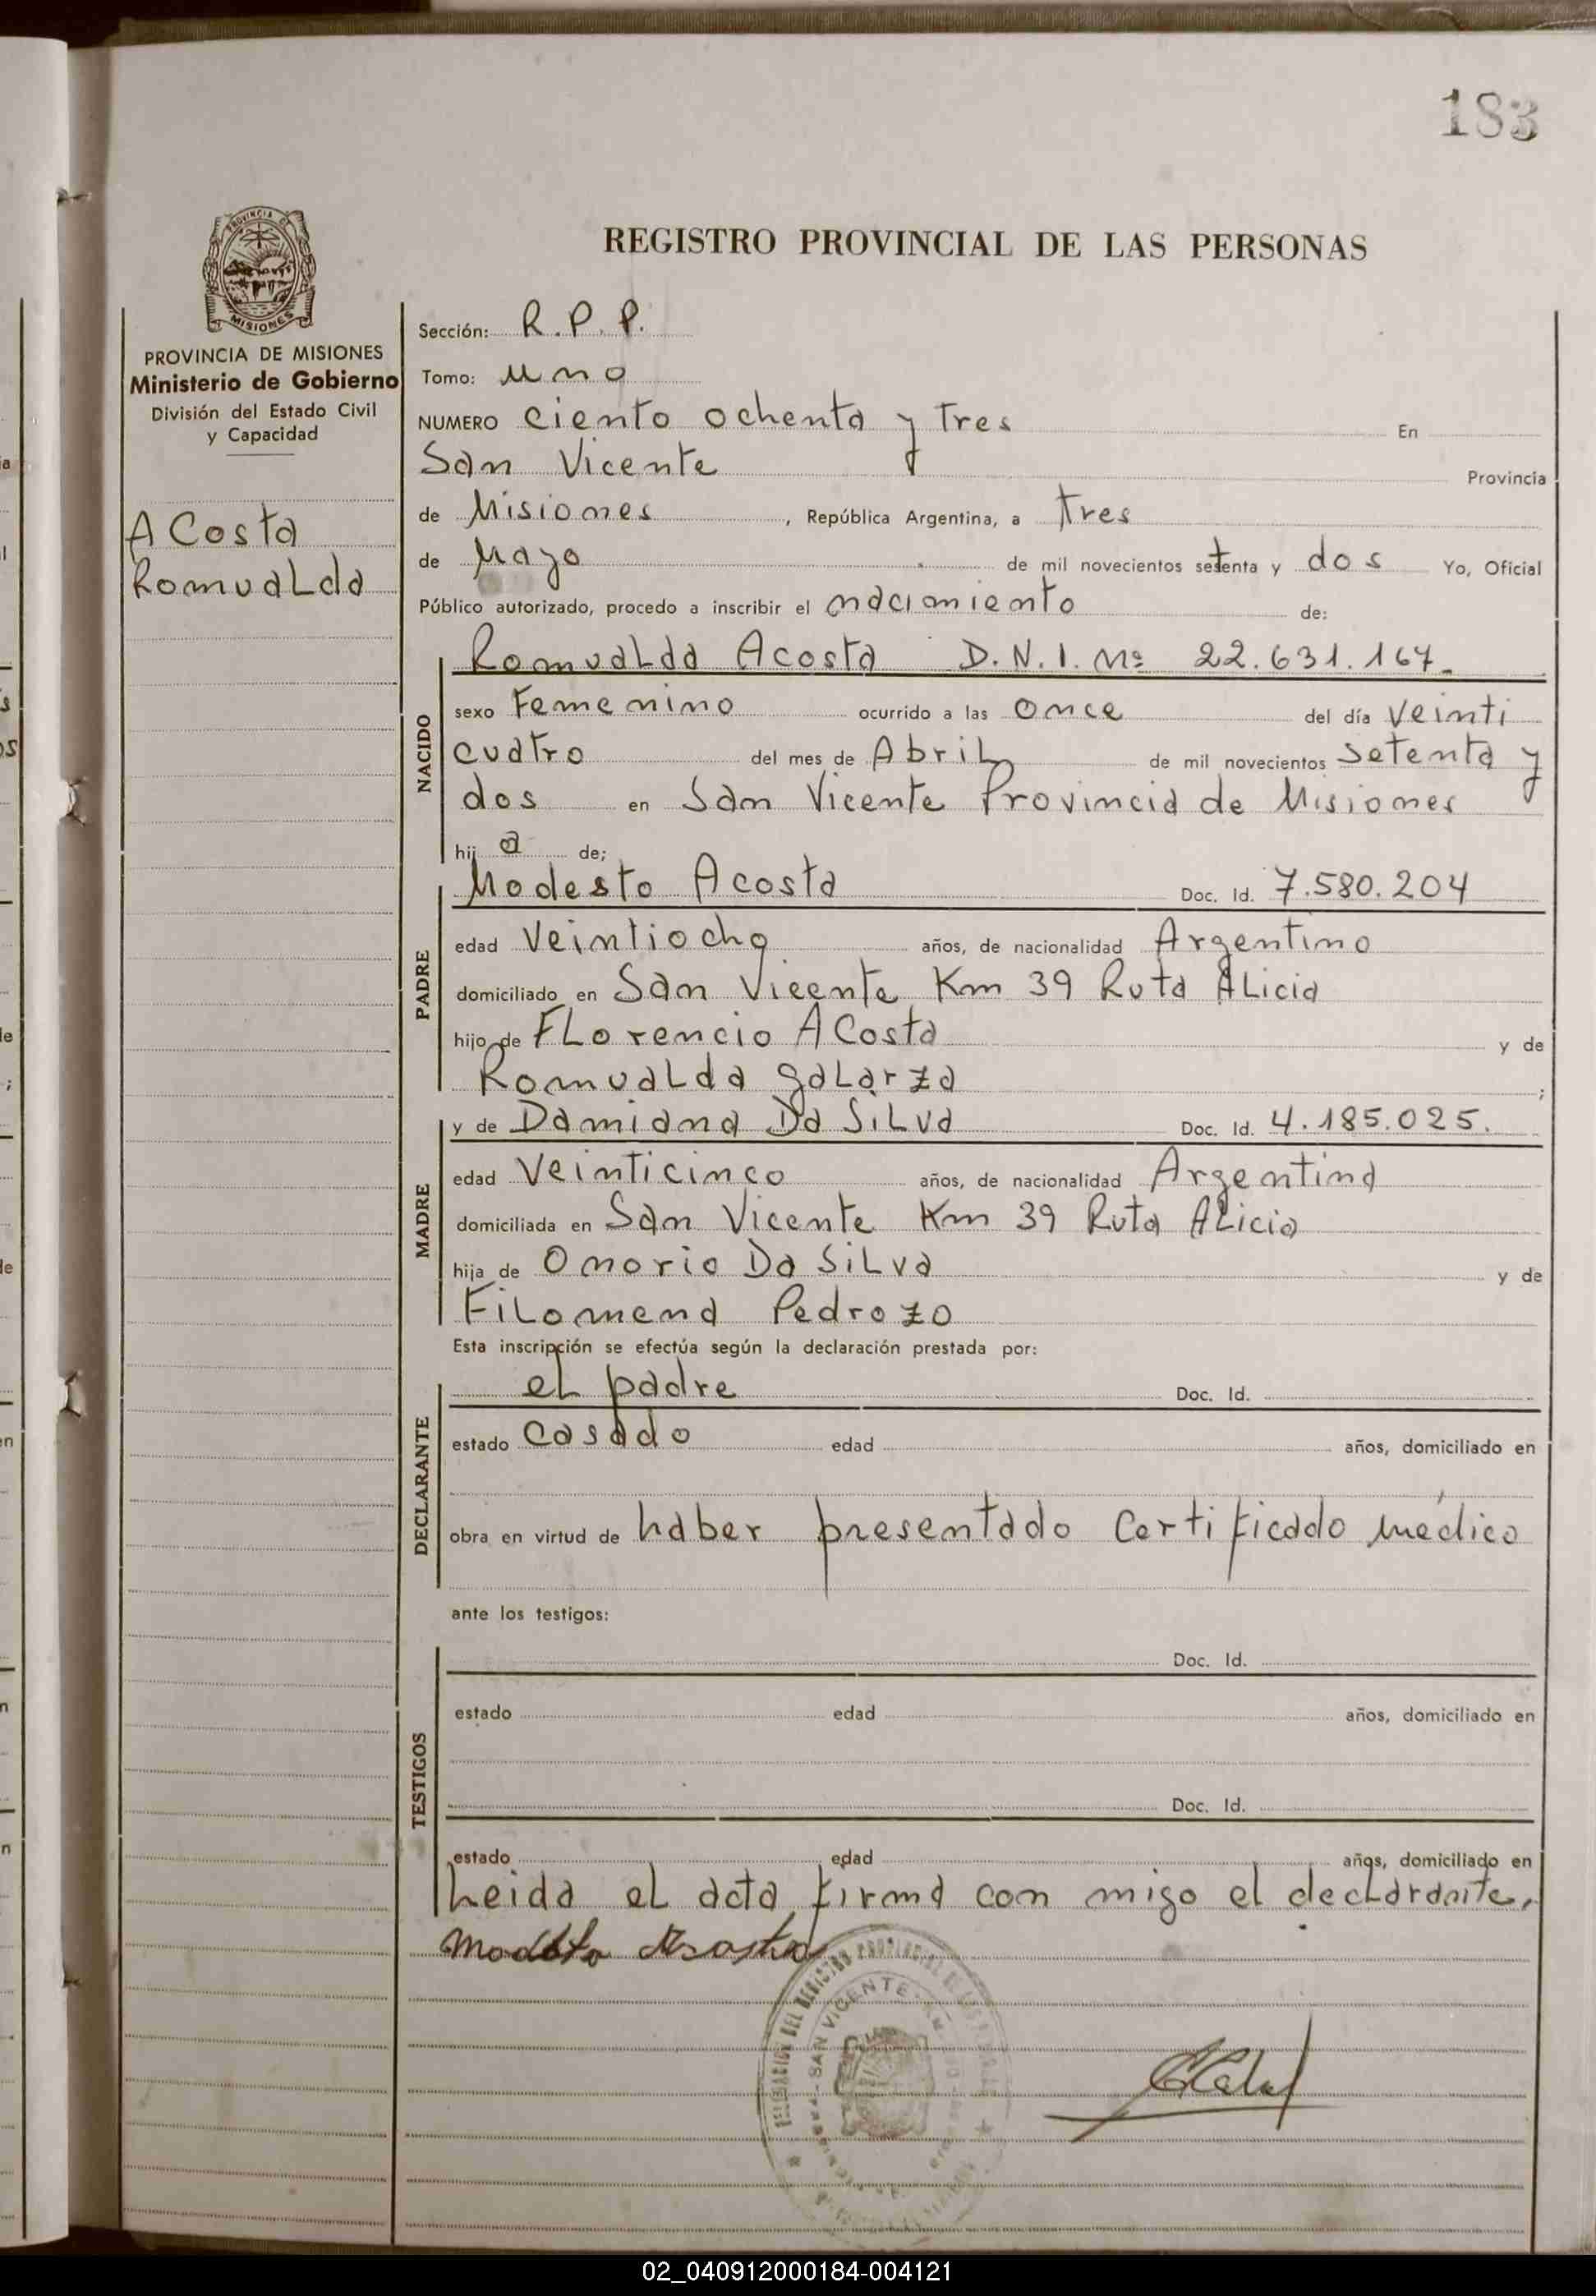 183
PROVINCIA DE
MISIONES
PROVINCIA DE MISIONES
Ministerio de Gobierno
División del Estado Civil
y Capacidad
ACosta
Romualda
REGISTRO PROVINCIAL DE LAS PERSONAS
Sección: R.P.P.
Tomo: uno
NUMERO ciento ochenta y Tres En
San Vicente Provincia
de Misiones, República Argentina, a tres
de Mayo de mil novecientos setenta y dos Yo, Oficial
Público autorizado, procedo a inscribir el nacimiento de:
NACIDO
Romualda Acosta D.N.I. Nº 22.631.167
sexo Femenino ocurrido a las once del día veinti
cuatro del mes de Abril de mil novecientos setenta y
dos en San Vicente Provincia de Misiones
hij a de;
PADRE
Modesto Acosta Doc. Id. 7.580.204
edad Veintiocho años, de nacionalidad Argentino
domiciliado en San Vicente Km 39 Ruta Alicia
hijo de Florencio ACosta y de
Romualda galarza ;
MADRE
y de Damiana Da Silva Doc. Id. 4.185.025.
edad Veinticinco años, de nacionalidad Argentina
domiciliada en San Vicente Km 39 Ruta Alicia
hija de Onorio Da Silva y de
Filomena Pedrozo
Esta inscripción se efectúa según la declaración prestada por:
DECLARANTE
el padre Doc. Id.
estado Casado edad años, domiciliado en
obra en virtud de haber presentado Certificado médico
ante los testigos:
TESTIGOS
Doc. Id.
estado edad años, domiciliado en
Doc. Id.
estado edad años, domiciliado en
Leida el acta firma con migo el declarante,
Modesto Acosta
DELEGACION DEL REGISTRO PROVINCIAL DE LAS PERSONAS
SAN VICENTE
02_040912000184-004121